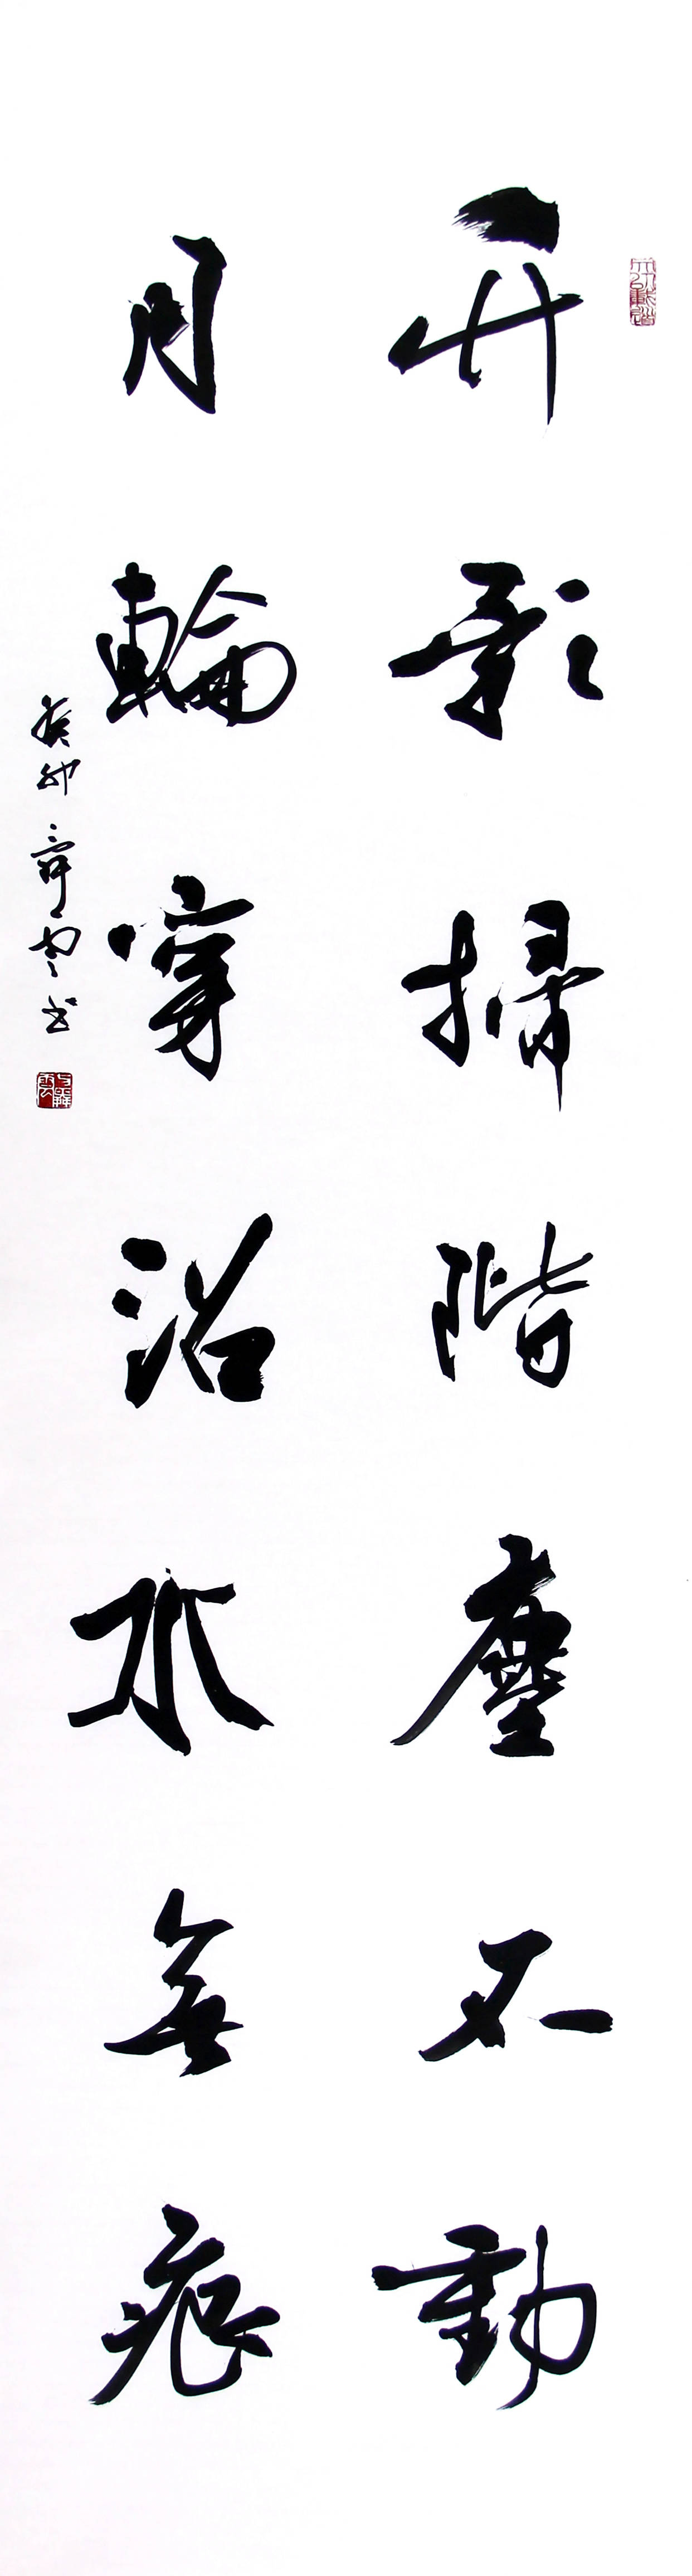 竹影掃階塵不動
月輪穿沼水無痕
癸卯 雲书